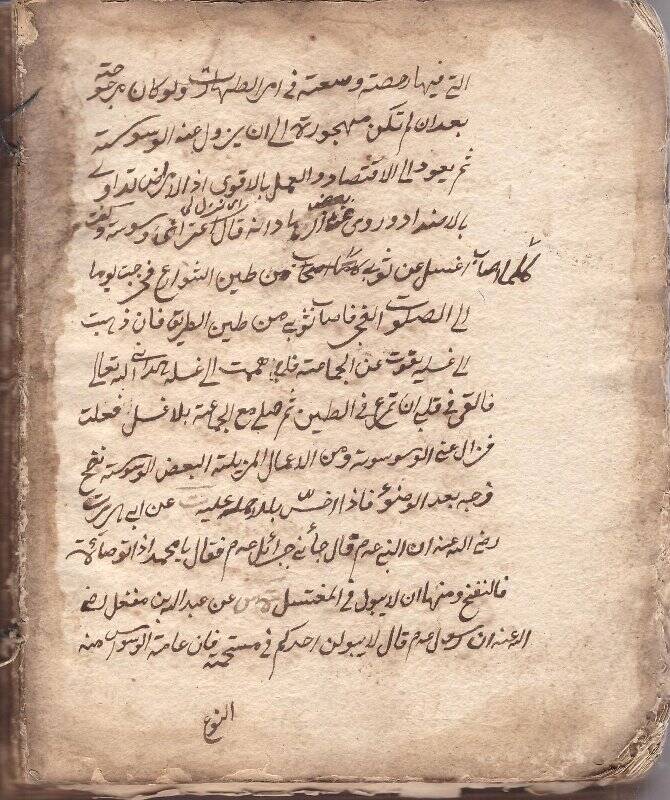 التى فيها رخصة وسعة فى امر الطهارات ولو كان مرجوحة
بعد ان لم تكن مهجورة الى ان يزول عنه الوسوسة
ثم يعود الى الاقتصاد والعمل بالاقوى اذ الامراض تداوى
بالاضداد وروى عن بعض الزهاد انه قال اعترانى وسوسة وكنت
كلما اصاب اغسل عن ثوبى من طين الشوارع فخرجت يوما
الى الصلوة الفجر فاصاب ثوبى من طين الطريق فان ذهبت
الى غسله يفوت عن الجماعة فلما هممت الى غسله هدانى الله تعالى
فالقى فى قلبى ان تمرغ فى الطين ثم صلى مع الجماعة بلا غسل ففعلت
فزال عنى الوسوسة ومن الاعمال المزيلة البعض الوسوسة نضح
فرجه بعد الوضوء فاذا احس بللا حمله عليه ت عن ابى هريرة
رضى الله عنه ان النبى عدم قال جأنى جبرائيل عدم فقال يا محمد اذا توضأت
فالنضح ومنها ان لا يبول فى المغتسل عن عبد الله بن مغفل رضى
الله عنه ان رسول عدم قال لا يبولن احدكم فى مستحمه فان عامة الوسواس منه
النوع